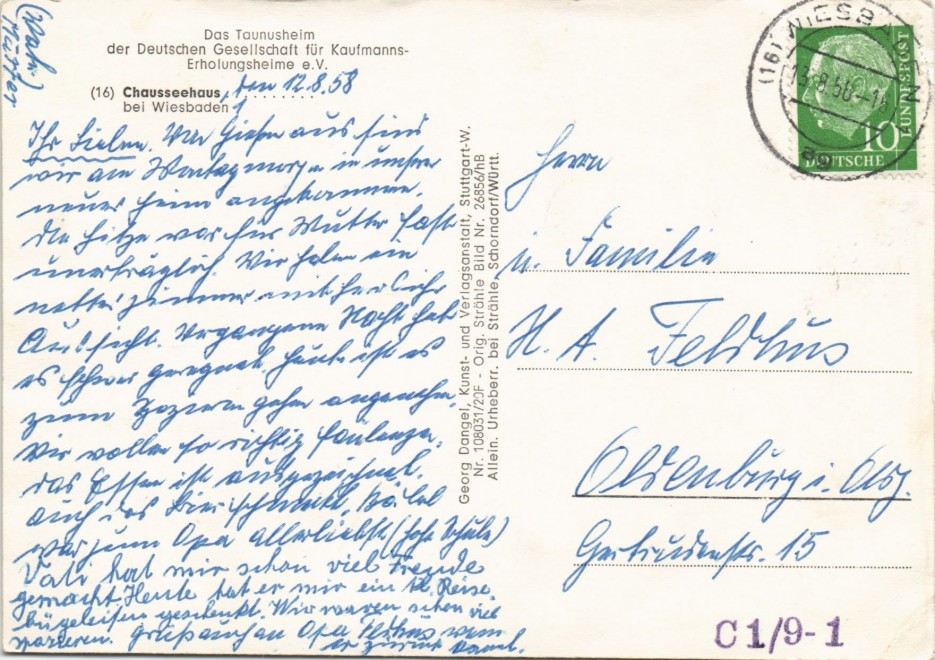 Das Taunusheim
der Deutschen Gesellschaft für Kaufmanns-
Erholungsheime e.V.
(16) Chausseehaus, den 12.8.58
bei Wiesbaden
Ihr Lieben. Von Gießen aus sind
wir am Montagmorgen in unser
neues Heim angekommen.
Die Hitze war für Mutter fast
unerträglich. Wir haben ein
nettes Zimmer mit herrlicher
Aussicht. Vergangene Nacht hat
es schwer geregnet, heute ist es
zum Spazierengehen angenehm.
Wir wollen so richtig faulenzen.
Das Essen ist ausgezeichnet,
auch das Bier schmeckt.
war zum Opa allerliebst
Vati hat mir schon viel Freude
gemacht. Heute hat er mir ein kl. Reise-
bügeleisen geschenkt. Wir waren schon viel
spazieren. Grüß auch an Opa wenn
er zurück kommt.
(Vati)
Mutter
Georg Dangel, Kunst- und Verlagsanstalt, Stuttgart-W.
Nr. 108031/20F - Orig. Strähle Bild Nr. 26856/hB
Allein. Urheberr. bei Strähle, Schorndorf/Württ.
WIESBADEN
(16)
10
DEUTSCHE
BUNDESPOST
Herrn
u. Familie
H. A. Feldhus
Oldenburg i. Old.
Gertrudenstr. 15
C 1/9-1